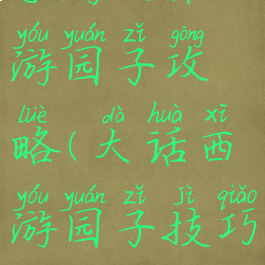 yóu yuán zǐ gōng
游园子攻
lüè dà huà xī
略(大话西
yóu yuán zǐ jì qiǎo
游园子技巧